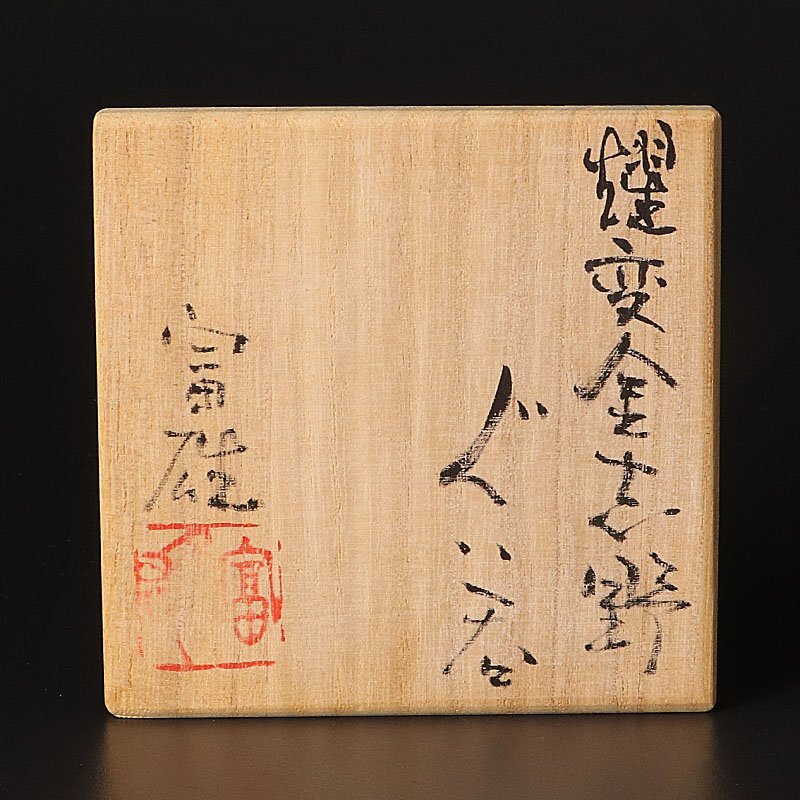 燿変金志野
ぐい呑
富雄